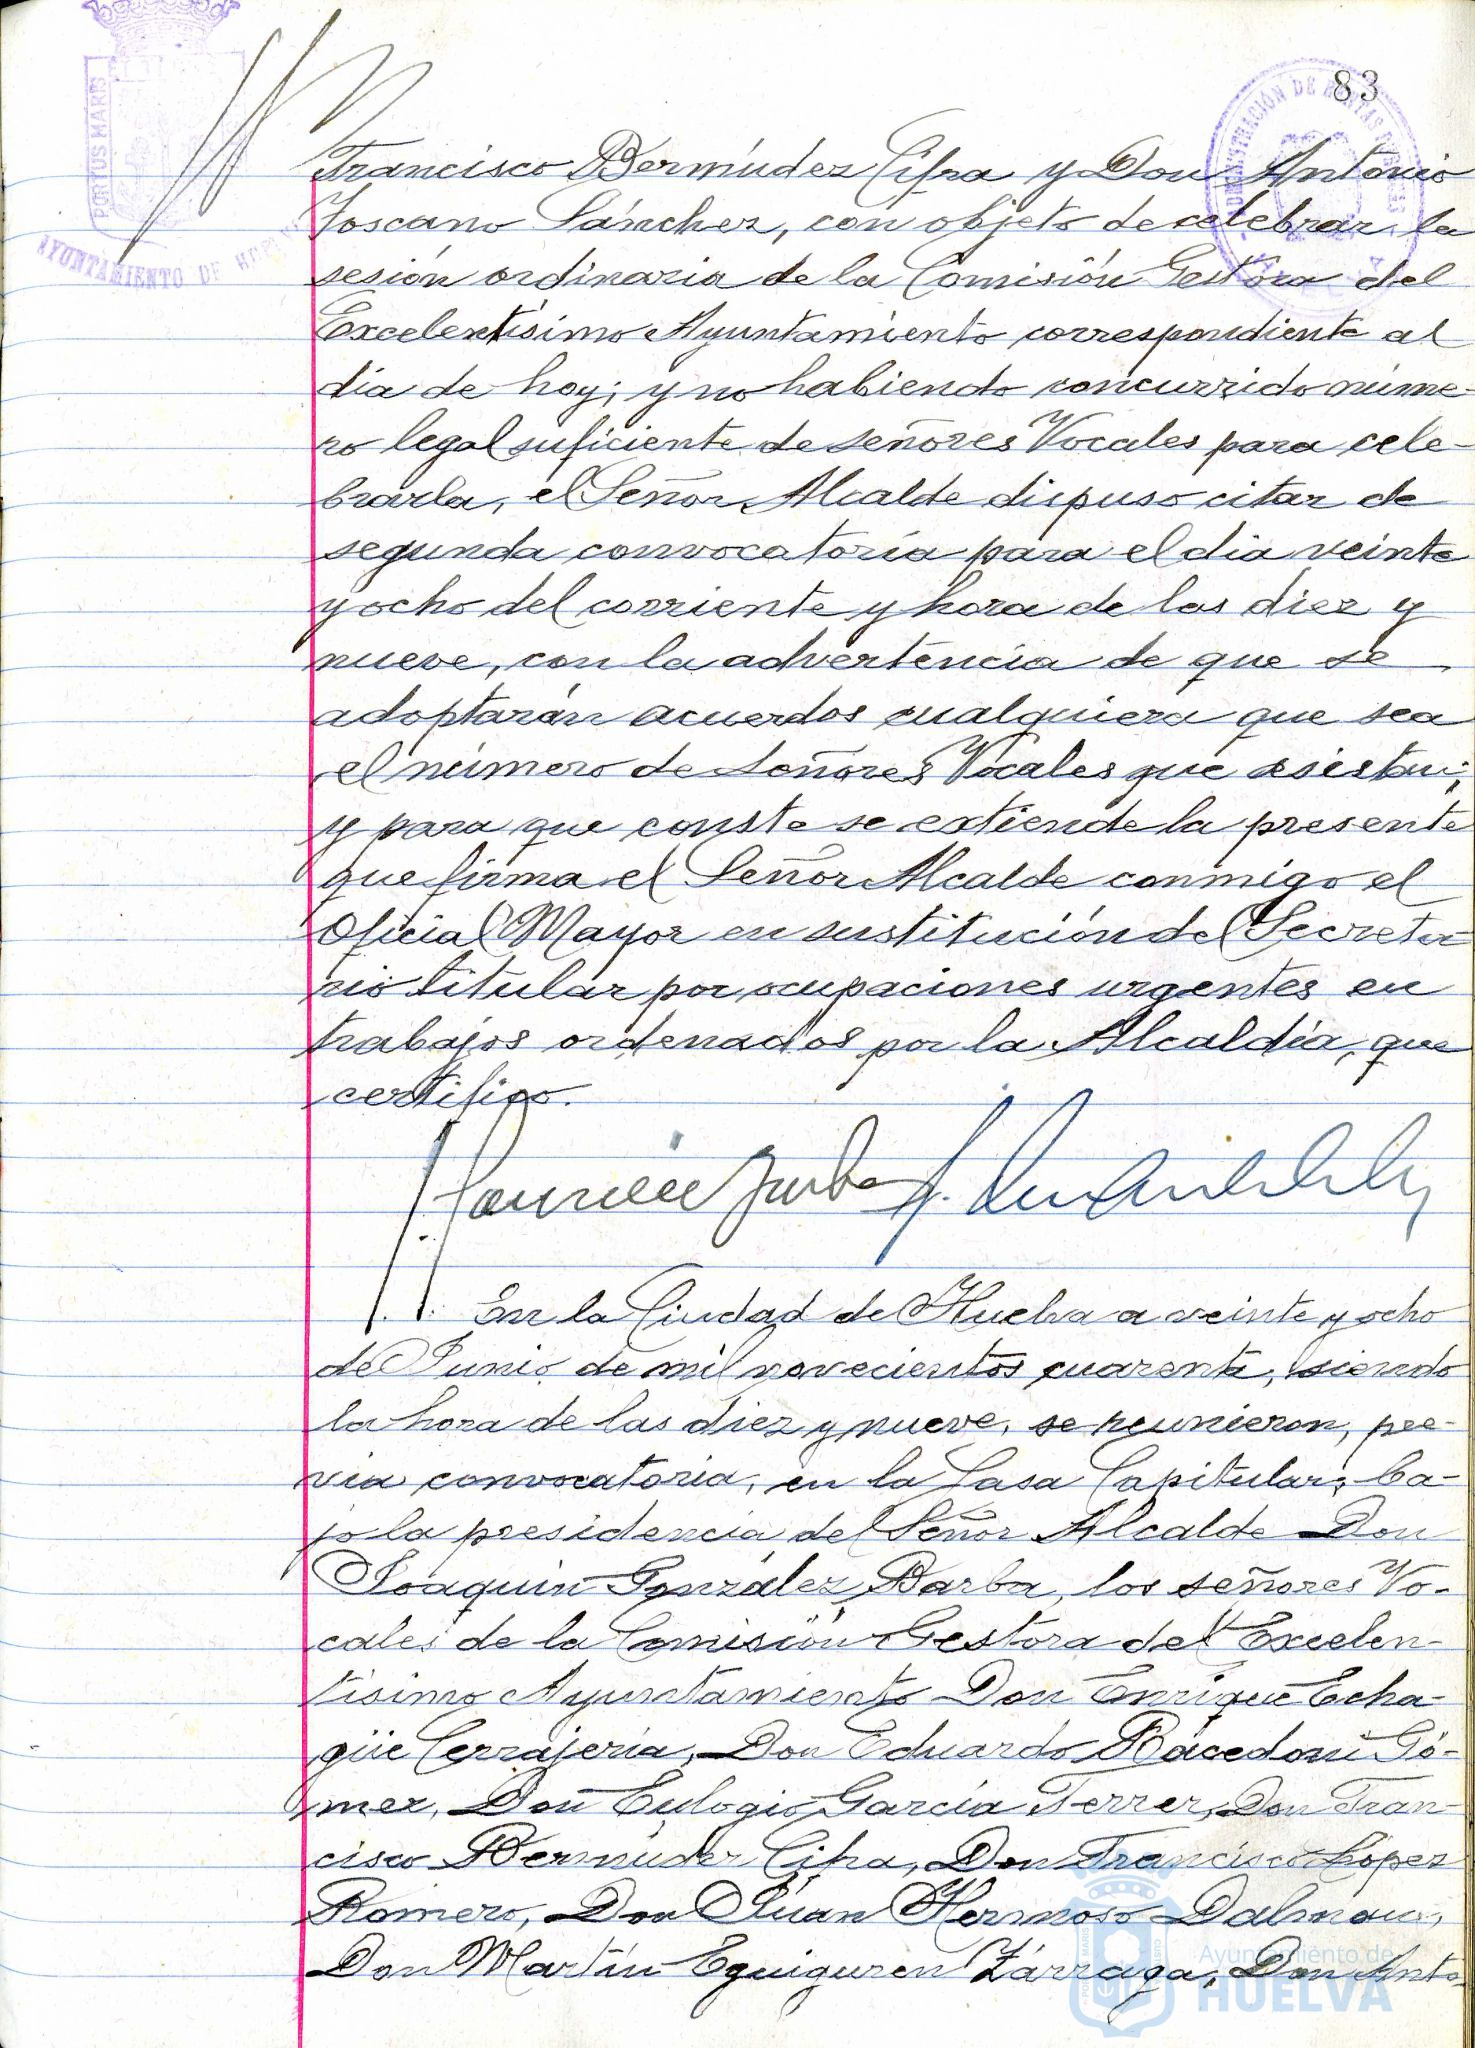 83
PORTUS MARIS
AYUNTAMIENTO DE HUELVA
ADMINISTRACIÓN DE RENTAS PÚBLICAS
Francisco Bermúdez Cifra y Don Antonio
Toscano Sánchez, con objeto de celebrar la
sesión ordinaria de la Comisión Gestora del
Excelentísimo Ayuntamiento correspondiente al
día de hoy; y no habiendo concurrido núme-
ro legal suficiente de señores Vocales para cele-
brarla, el Señor Alcalde dispuso citar de
segunda convocatoria para el dia veinte
y ocho del corriente y hora de las diez y
nueve, con la advertencia de que se
adoptarán acuerdos cualquiera que sea
el número de señores Vocales que asistan;
y para que conste se extiende la presente
que firma el Señor Alcalde conmigo el
Oficial Mayor en sustitución del Secreta-
rio titular por ocupaciones urgentes en
trabajos ordenados por la Alcaldía, que
certifico.
En la Ciudad de Huelva a veinte y ocho
de Junio de mil novecientos cuarenta, siendo
la hora de las diez y nueve, se reunieron, pre-
via convocatoria, en la Casa Capitular, ba-
jo la presidencia del Señor Alcalde Don
Joaquin González Barba, los señores Vo-
cales de la Comisión Gestora del Excelen-
tísimo Ayuntamiento Don Enrique Echa-
güe Cerrajería, Don Eduardo Rácedoni Gó-
mez, Don Eulogio García Ferrer, Don Fran-
cisco Bermúdez Cifra, Don Francisco López
Romero, Don Juan Hermoso Dalmau,
Don Martín Eguiguren Zárraga, Don Anto-
Ayuntamiento de
HUELVA